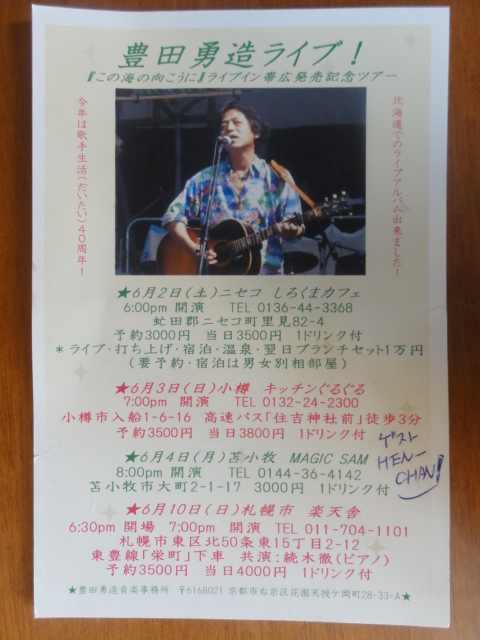 豊田勇造ライブ!
『この海の向こうに』ライブイン帯広発売記念ツアー
北海道でのライブアルバム出来ました!
今年は歌手生活(だいたい)40周年!
★6月2日(土)ニセコ しろくまカフェ
6:00pm 開演 TEL 0136-44-3368
虻田郡ニセコ町里見82-4
予約3000円 当日3500円 1ドリンク付
*ライブ・打ち上げ・宿泊・温泉・翌日ブランチセット1万円
(要予約・宿泊は男女別相部屋)
★6月3日(日)小樽 キッチンぐるぐる
7:00pm 開演 TEL 0132-24-2300
小樽市入船1-6-16 高速バス「住吉神社前」徒歩3分
予約3500円 当日3800円 1ドリンク付
★6月4日(月)苫小牧 MAGIC SAM
8:00pm 開演 TEL 0144-36-4142
苫小牧市大町2-1-17 3000円 1ドリンク付
ゲスト
HEN-
CHAN!
★6月10日(日)札幌市 楽天舎
6:30pm 開場 7:00pm 開演 TEL 011-704-1101
札幌市東区北50条東15丁目2-12
東豊線「栄町」下車 共演:続木徹(ピアノ)
予約3500円 当日4000円 1ドリンク付
★豊田勇造音楽事務所 〒6168021 京都市右京区花園天授ケ岡町28-33-A★